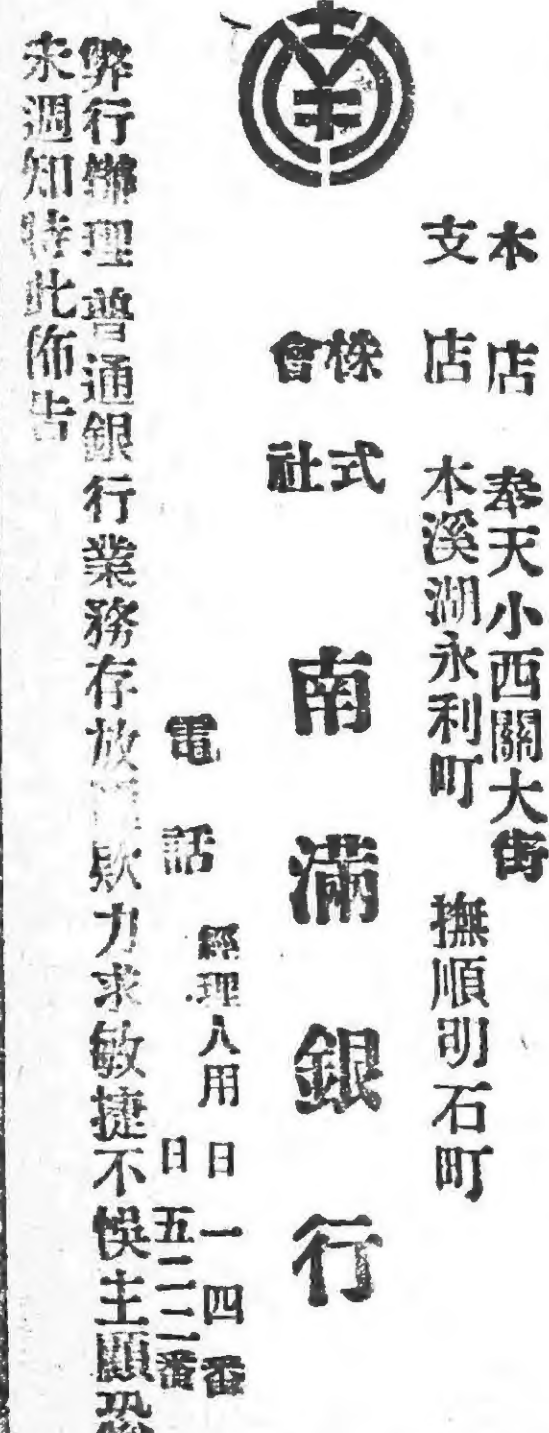 本店 奉天小西關大街
支店 本溪湖永利町 撫順明石町
株式
會社
南滿銀行
電話
經理人用 日一四番
日五二二番
弊行辦理普通銀行業務存放款力求敏捷不悞主顧恐
未週知特此佈告